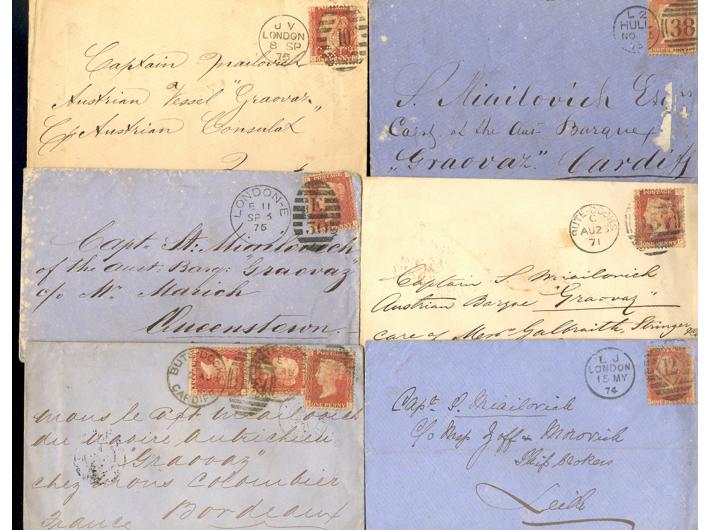 J V
LONDON
8 SP
75
10
Captain Miailovich
Austrian Vessel "Graovaz"
Austrian Consulat
L 2
HULL
NO
383
S. Miailovich Esq
Capt. of the Aus. Barque
"Graovaz" Cardiff
LONDON-E
E 11
SP
75
E
Capt. St. Miailovich
of the Aust: Barq: "Graovaz"
c/o Mr. Marich
Queenstown.
BUTE-DOCKS
C
AU 25
71
Captain S Miailovich
Austrian Barque "Graovaz"
care of Messrs Galbraith, Stringer
BUTE-DOCKS
CARDIFF
ONE PENNY
Mons le Capt Miailovich
du navire Autrichien
"Graovaz"
chez Mons Colombier
Bordeaux
France
L J
LONDON
15 MY
74
12
Capt. S. Miailovich
c/o Messp Goff &
Ship brokers
Leith